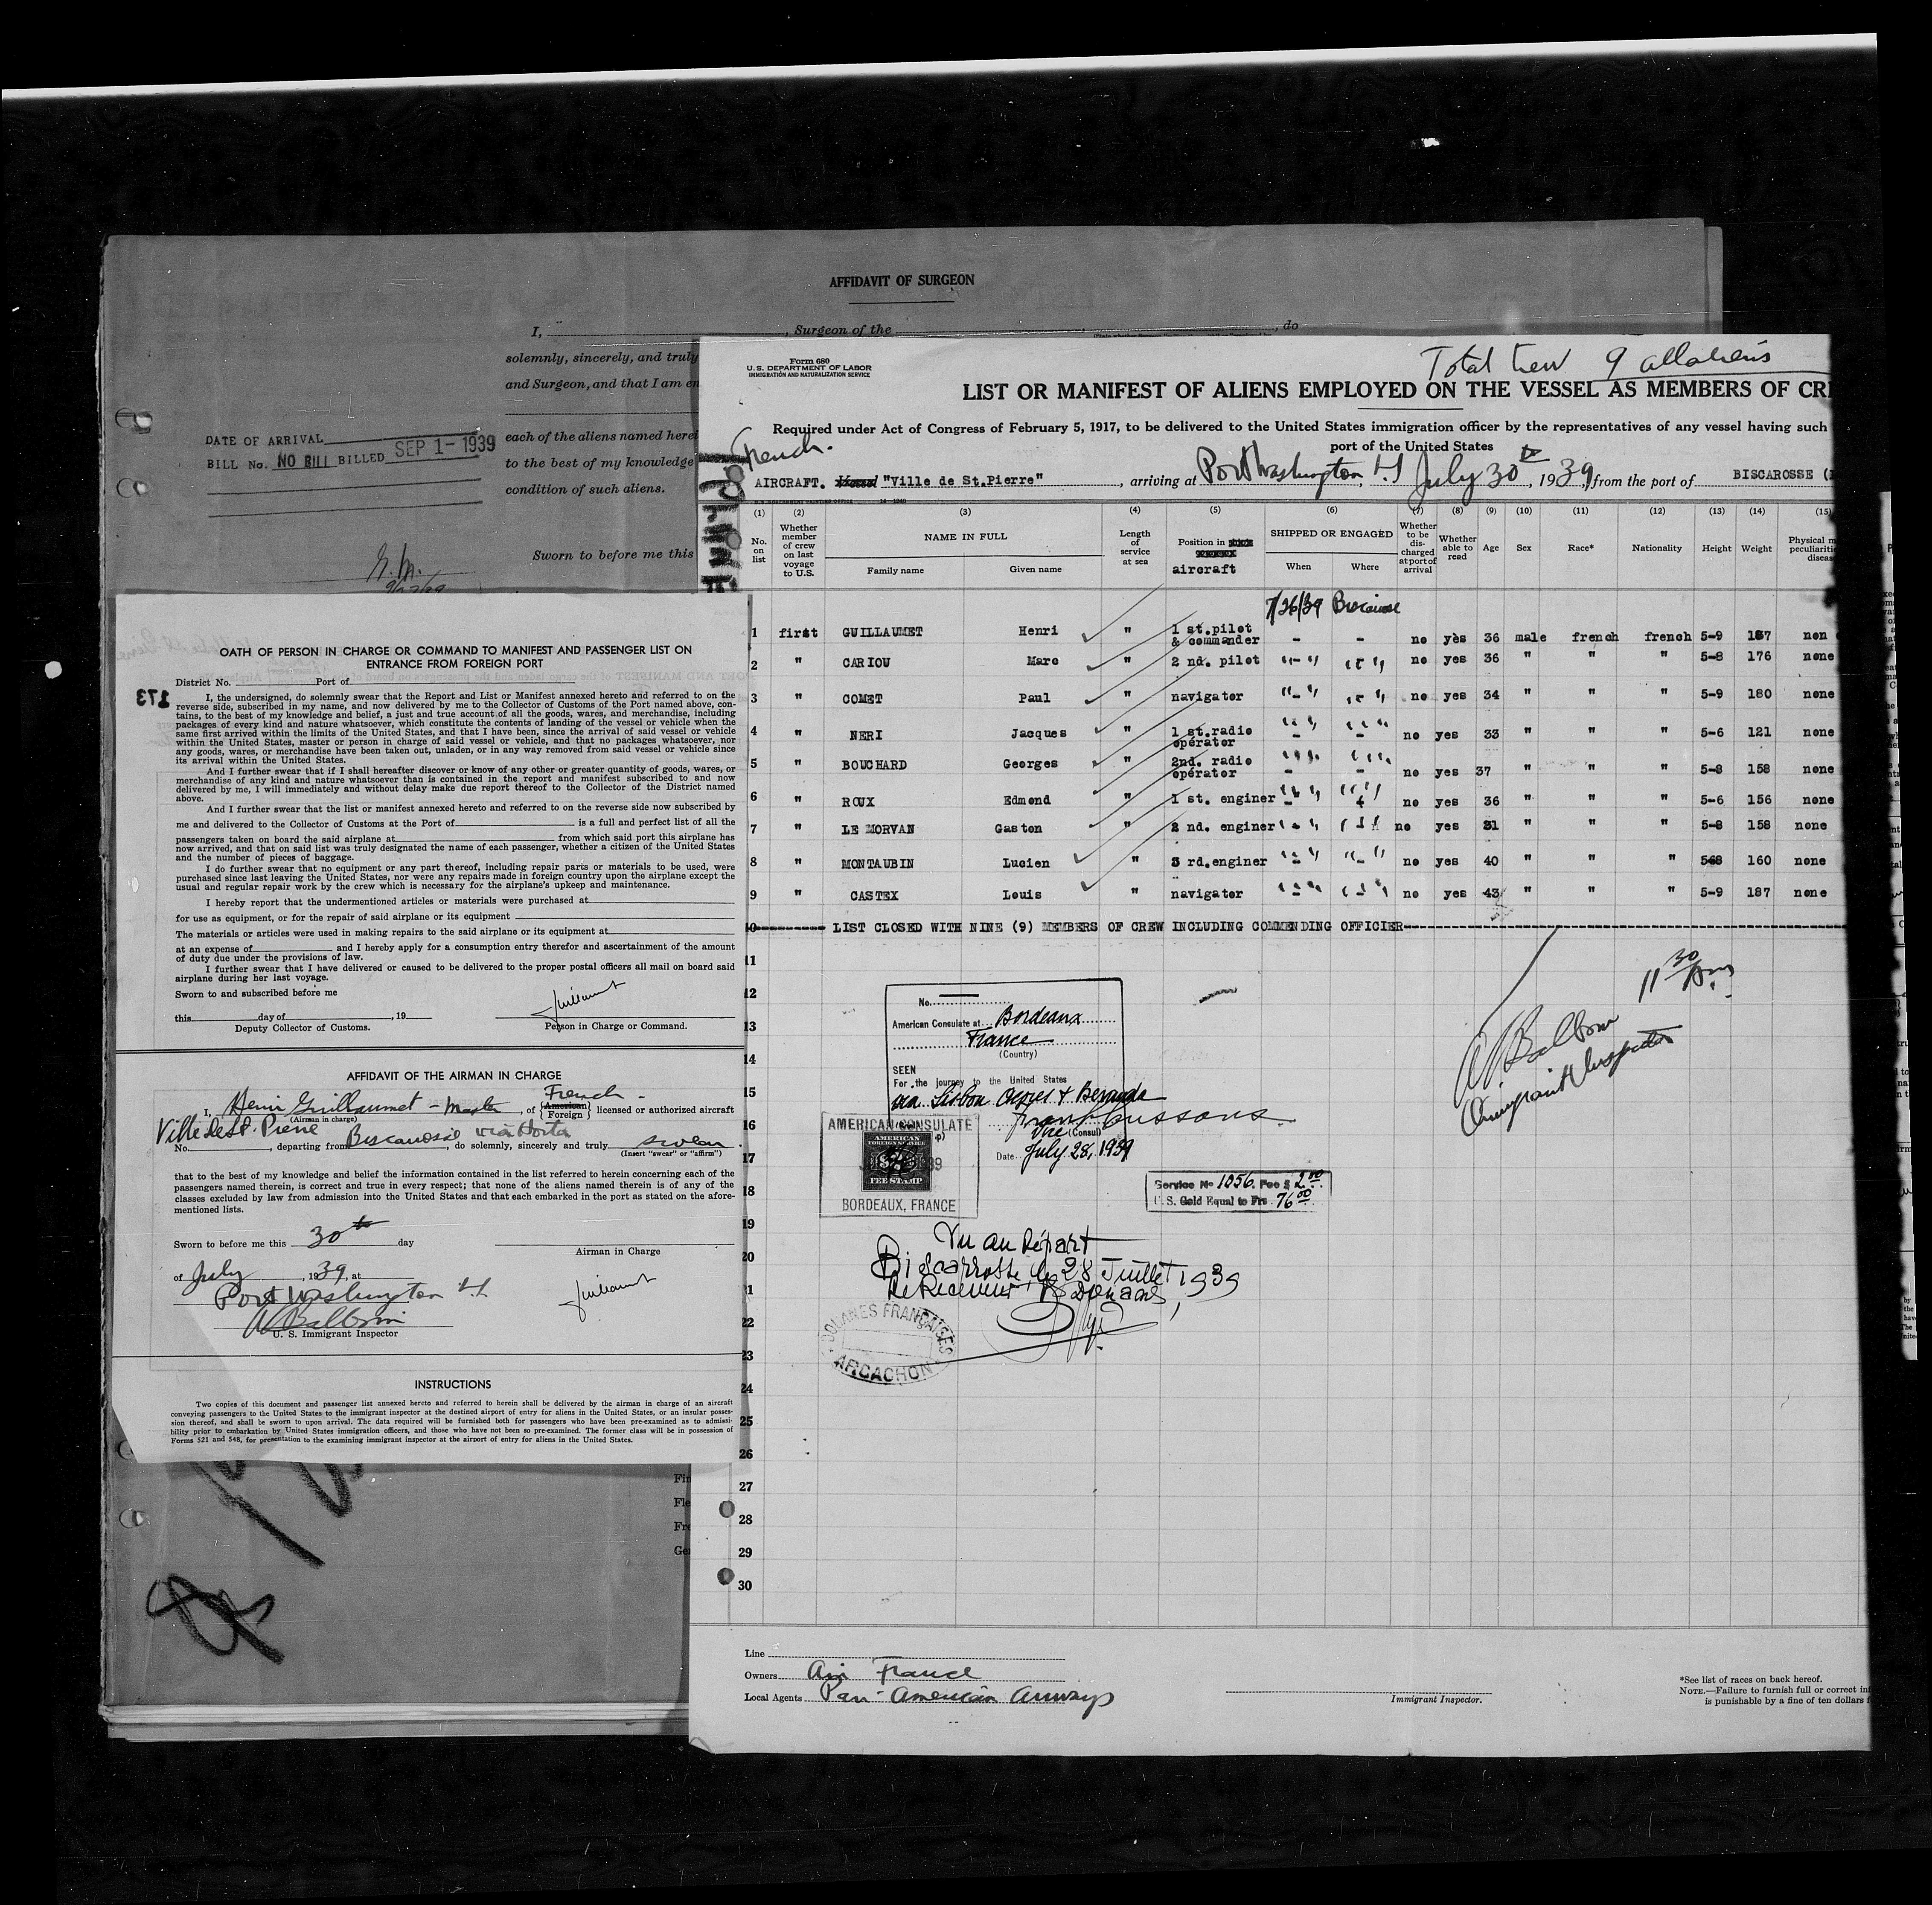 AFFIDAVIT OF SURGEON
I, , Surgeon of the , do
solemnly, sincerely, and truly
and Surgeon, and that I am en
each of the aliens named herei
to the best of my knowledge
condition of such aliens.
Sworn to before me this
DATE OF ARRIVAL SEP 1 - 1939
BILL No. NO BILL BILLED
Form 680
U. S. DEPARTMENT OF LABOR
IMMIGRATION AND NATURALIZATION SERVICE
Total Crew 9 all aliens
LIST OR MANIFEST OF ALIENS EMPLOYED ON THE VESSEL AS MEMBERS OF CRE
Required under Act of Congress of February 5, 1917, to be delivered to the United States immigration officer by the representatives of any vessel having such
port of the United States
French.
AIRCRAFT. Vessel "Ville de St.Pierre" , arriving at Port Washington, L.I. July 30th , 1939, from the port of BISCAROSSE
(1) (2) (3) (4) (5) (6) (7) (8) (9) (10) (11) (12) (13) (14) (15)
No. on list
Whether member of crew on last voyage to U.S.
NAME IN FULL
Family name Given name
Length of service at sea
Position in aircraft
SHIPPED OR ENGAGED
When Where
Whether to be discharged at port of arrival
Whether able to read
Age Sex Race* Nationality Height Weight
Physical m
peculiariti
diseas
7/26/39 Biscarosse
1 first GUILLAUMET Henri " 1 st.pilot & commander - - no yes 36 male french french 5-9 187 non
2 " CARIOU Marc " 2 nd. pilot "-" "-" no yes 36 " " " 5-8 176 none
3 " COMET Paul " navigator "-" "-" no yes 34 " " " 5-9 180 none
4 " NERI Jacques " 1 st.radio operator "-" "-" no yes 33 " " " 5-6 121 none
5 " BOUCHARD Georges " 2nd. radio operator "-" "-" no yes 37 " " " 5-8 158 none
6 " ROUX Edmond " 1 st. enginer "-" "-" no yes 36 " " " 5-6 156 none
7 " LE MORVAN Gaston " 2 nd. enginer "-" "-" no yes 31 " " " 5-8 158 none
8 " MONTAUBIN Lucien " 3 rd.enginer "-" "-" no yes 40 " " " 5-8 160 none
9 " CASTEX Louis " navigator "-" "-" no yes 43 " " " 5-9 187 none
10 LIST CLOSED WITH NINE (9) MEMBERS OF CREW INCLUDING COMMENDING OFFICIER
11
12
13
14
15
16
17
18
19
20
21
22
23
24
25
26
27
28
29
30
11 30 Am
A Balboni
Immigrant Inspector
No.
American Consulate at Bordeaux
France
(Country)
SEEN
For the journey to the United States
via Lisbon Azores & Bermuda
Vice (Consul)
Date July 28, 1939
AMERICAN CONSULATE
AMERICAN
FOREIGN SERVICE
FEE STAMP
BORDEAUX, FRANCE
Service No 1056. Fee $ 2.00
U. S. Gold Equal to Frs. 76.00
Vu au Départ
Biscarrosse, le 28 Juillet 1939
Le Receveur des Douanes,
DOUANES FRANÇAISES
ARCACHON
Line
Owners Air France
Local Agents Pan-American Airways
Immigrant Inspector.
*See list of races on back hereof.
NOTE.—Failure to furnish full or correct inf
is punishable by a fine of ten dollars f
OATH OF PERSON IN CHARGE OR COMMAND TO MANIFEST AND PASSENGER LIST ON
ENTRANCE FROM FOREIGN PORT
173
District No. Port of
I, the undersigned, do solemnly swear that the Report and List or Manifest annexed hereto and referred to on the
reverse side, subscribed in my name, and now delivered by me to the Collector of Customs of the Port named above, con-
tains, to the best of my knowledge and belief, a just and true account of all the goods, wares, and merchandise, including
packages of every kind and nature whatsoever, which constitute the contents of landing of the vessel or vehicle when the
same first arrived within the limits of the United States, and that I have been, since the arrival of said vessel or vehicle
within the United States, master or person in charge of said vessel or vehicle, and that no packages whatsoever, nor
any goods, wares, or merchandise have been taken out, unladen, or in any way removed from said vessel or vehicle since
its arrival within the United States.
And I further swear that if I shall hereafter discover or know of any other or greater quantity of goods, wares, or
merchandise of any kind and nature whatsoever than is contained in the report and manifest subscribed to and now
delivered by me, I will immediately and without delay make due report thereof to the Collector of the District named
above.
And I further swear that the list or manifest annexed hereto and referred to on the reverse side now subscribed by
me and delivered to the Collector of Customs at the Port of is a full and perfect list of all the
passengers taken on board the said airplane at from which said port this airplane has
now arrived, and that on said list was truly designated the name of each passenger, whether a citizen of the United States
and the number of pieces of baggage.
I do further swear that no equipment or any part thereof, including repair parts or materials to be used, were
purchased since last leaving the United States, nor were any repairs made in foreign country upon the airplane except the
usual and regular repair work by the crew which is necessary for the airplane's upkeep and maintenance.
I hereby report that the undermentioned articles or materials were purchased at
for use as equipment, or for the repair of said airplane or its equipment
The materials or articles were used in making repairs to the said airplane or its equipment at
at an expense of and I hereby apply for a consumption entry therefor and ascertainment of the amount
of duty due under the provisions of law.
I further swear that I have delivered or caused to be delivered to the proper postal officers all mail on board said
airplane during her last voyage.
Sworn to and subscribed before me
this day of , 19 Guillaumet
Deputy Collector of Customs. Person in Charge or Command.
AFFIDAVIT OF THE AIRMAN IN CHARGE
French
I, Henri Guillaumet - Master , of {American Foreign} licensed or authorized aircraft
(Airman in charge)
Ville de St. Pierre
No. , departing from Biscarosse via Horta , do solemnly, sincerely and truly swear
(Insert "swear" or "affirm")
that to the best of my knowledge and belief the information contained in the list referred to herein concerning each of the
passengers named therein, is correct and true in every respect; that none of the aliens named therein is of any of the
classes excluded by law from admission into the United States and that each embarked in the port as stated on the afore-
mentioned lists.
Sworn to before me this 30th day
Airman in Charge
of July , 1939, at
Guillaumet
Port Washington L.I.
A Balboni
U. S. Immigrant Inspector
INSTRUCTIONS
Two copies of this document and passenger list annexed hereto and referred to herein shall be delivered by the airman in charge of an aircraft
conveying passengers to the United States to the immigrant inspector at the destined airport of entry for aliens in the United States, or an insular posses-
sion thereof, and shall be sworn to upon arrival. The data required will be furnished both for passengers who have been pre-examined as to admissi-
bility prior to embarkation by United States immigration officers, and those who have not been so pre-examined. The former class will be in possession of
Forms 521 and 548, for presentation to the examining immigrant inspector at the airport of entry for aliens in the United States.
Fin
Fle
Fre
Ge